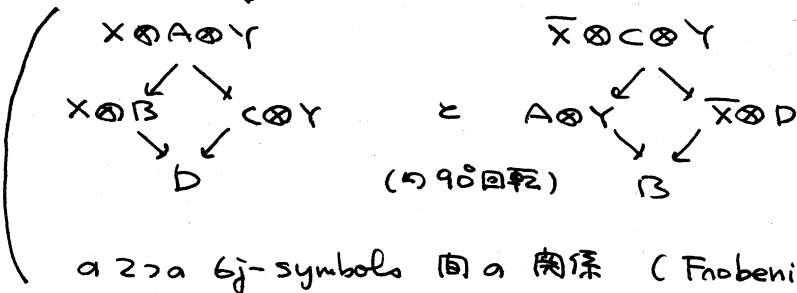 X⊗A⊗Y X̅⊗C⊗Y
X⊗B C⊗Y と A⊗Y X̅⊗D
D (の90°回転) B
の2つの 6j-symbols 間の関係 (Frobeni